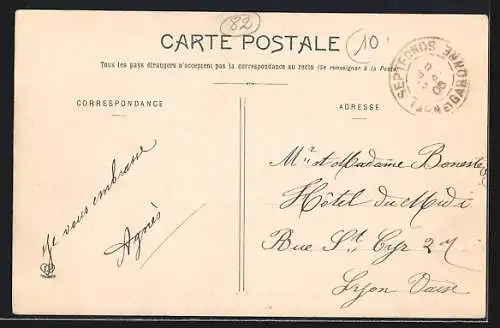 82
CARTE POSTALE
10
Tous les pays étrangers n'acceptent pas la correspondance au recto (Se renseigner à la Poste)
SEPTFONDS
TARN-&-GARONNE
08
CORRESPONDANCE
ADRESSE
Je vous embrasse
Agnès
Mr et Madame
Hôtel du Midi
Rue St Cyr 27
Lyon Vaise